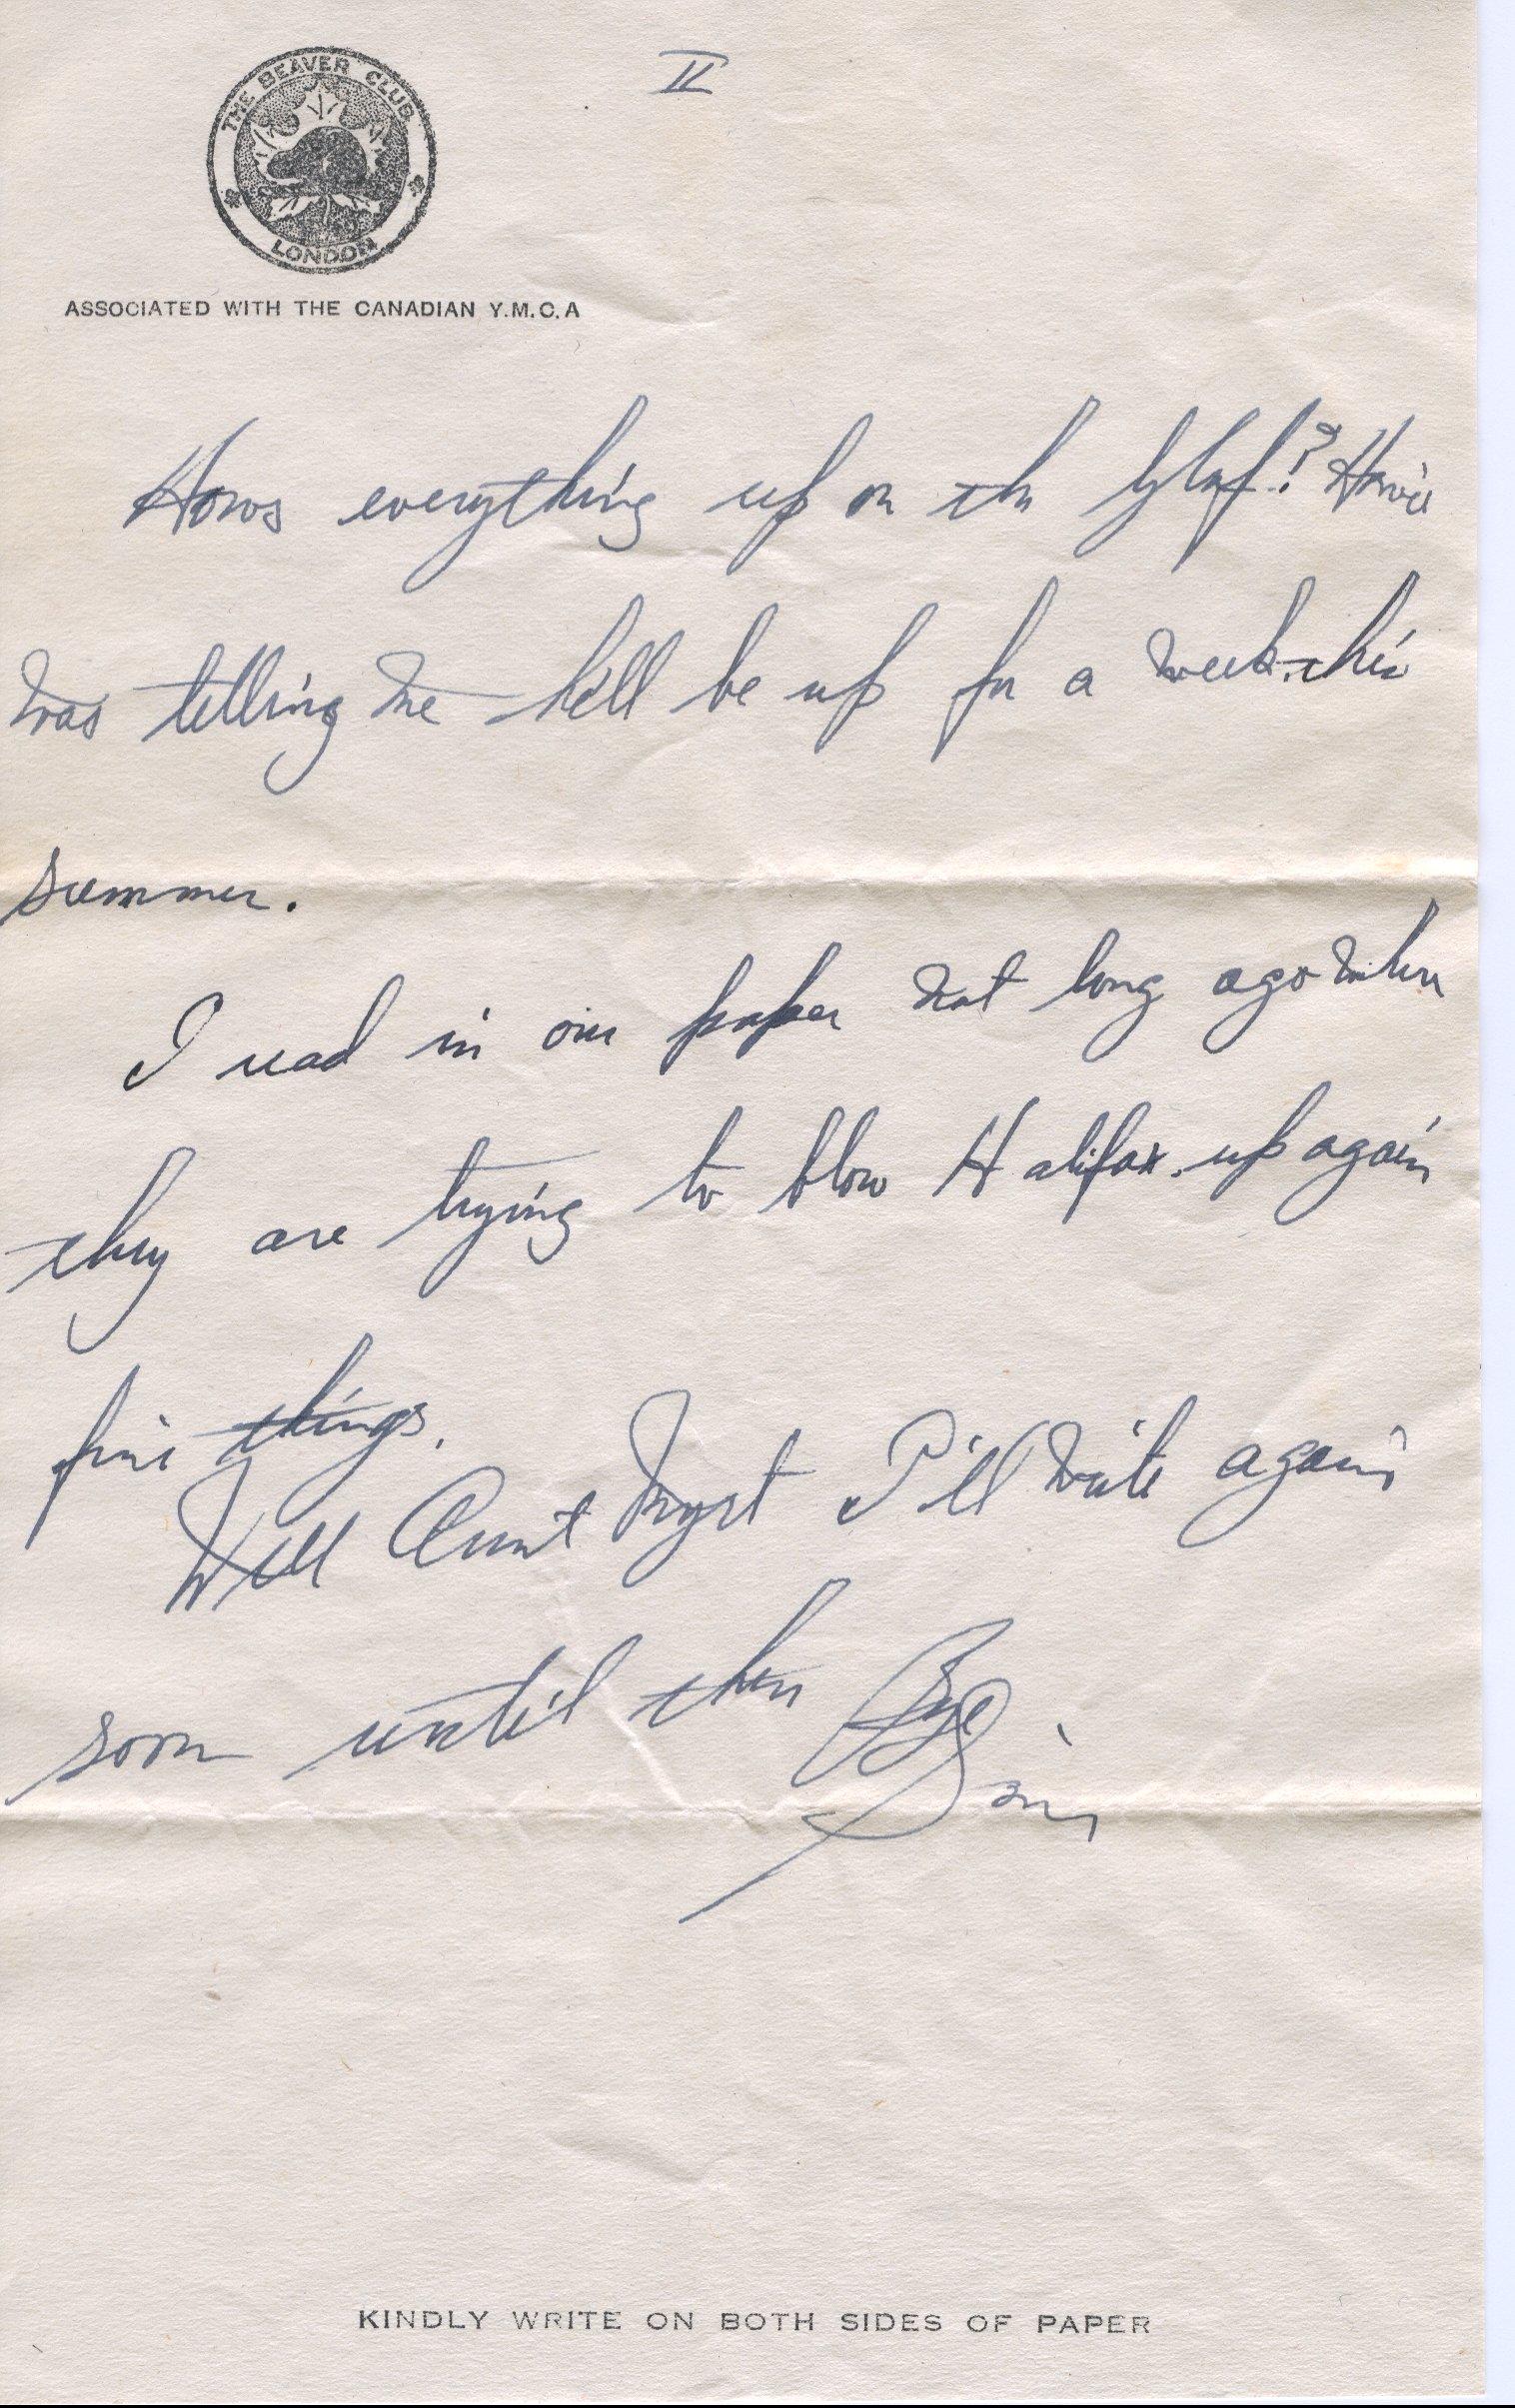 II
THE BEAVER CLUB
LONDON
ASSOCIATED WITH THE CANADIAN Y.M.C.A
Hows everything up on the Gulf? Howie
was telling me he'll be up for a week this
summer.
I read in our paper not long ago when
they are trying to blow Halifax up again
fine things.
Well Aunt Myrt I'll write again
soon until then Bye
KINDLY WRITE ON BOTH SIDES OF PAPER